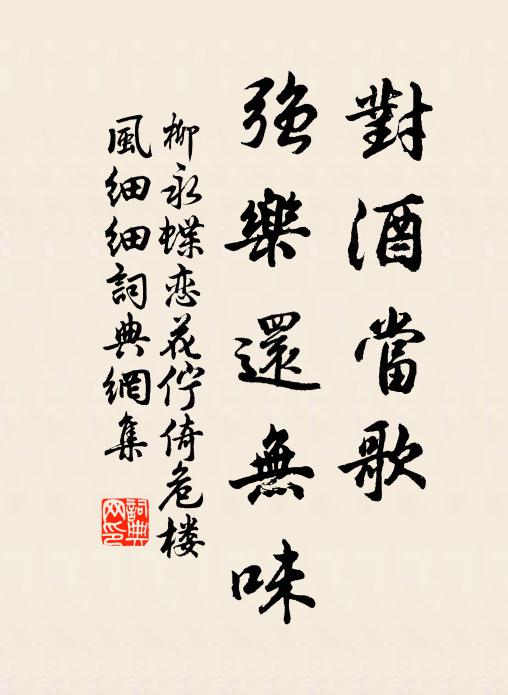 對酒當歌
強樂還無味
柳永蝶恋花佇倚危楼
風細細詞典網集
詞典
网印